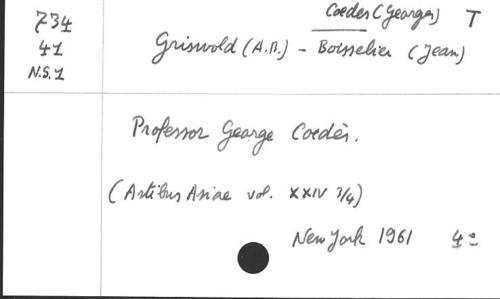 734
41
N.S.1
Coedes (Georges) T
Griswold (A.B.) - Boisselier (Jean)
Professor George Coedès.
(Artibus Asiae vol. XXIV 3/4)
New York 1961 4º